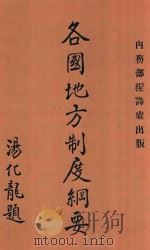 內務部編譯處出版
各國地方制度綱要
湯化龍題